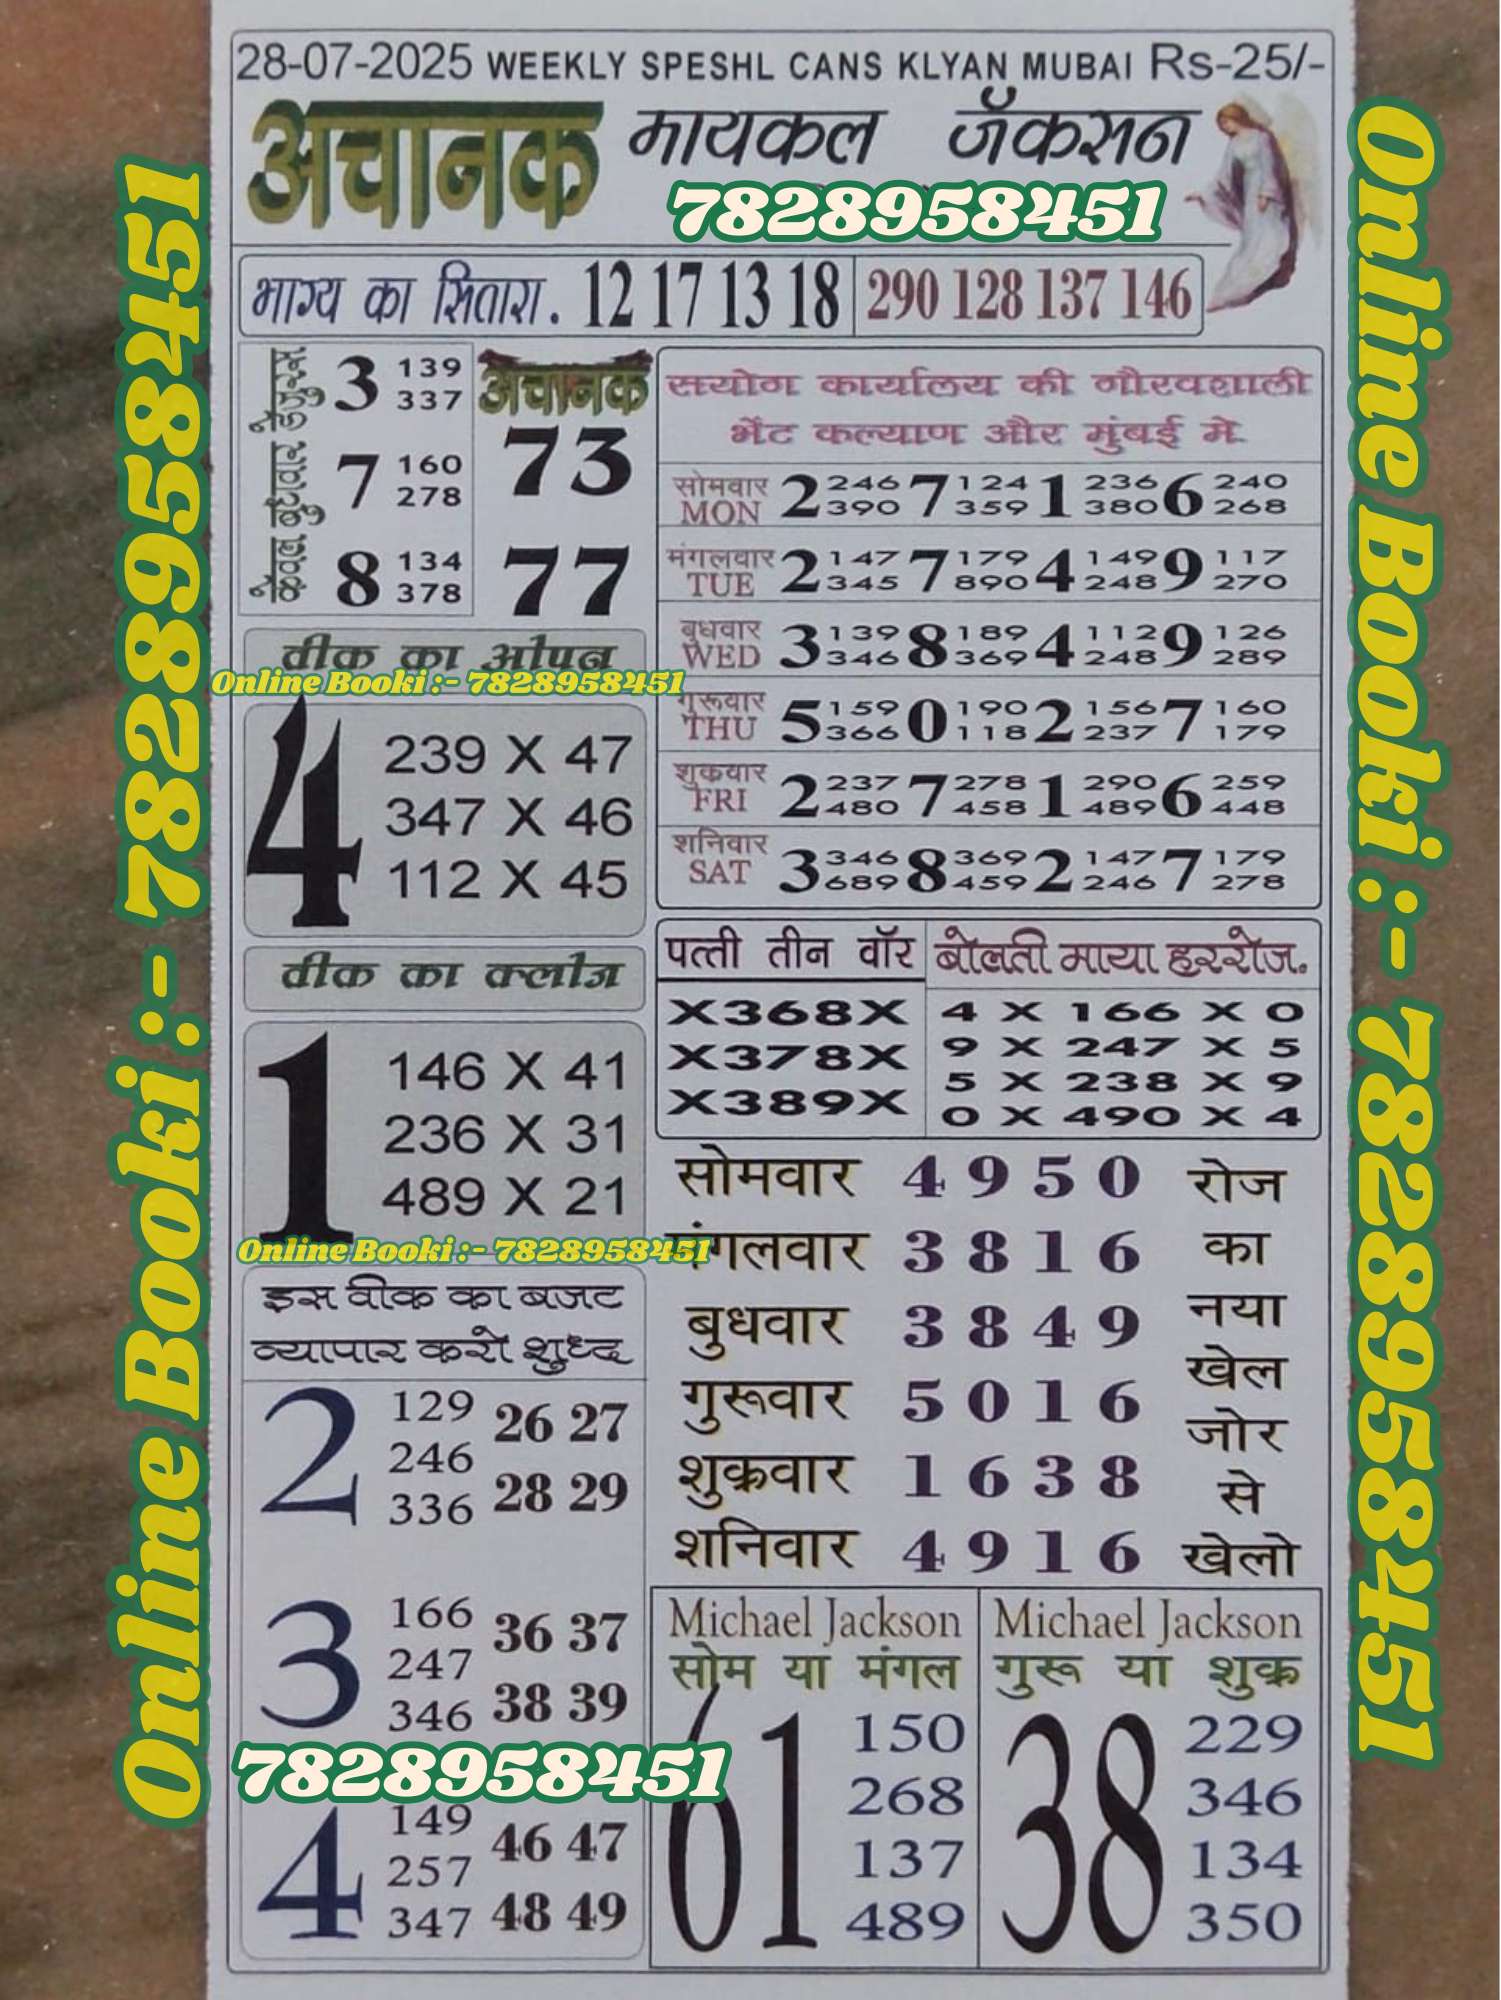 28-07-2025 WEEKLY SPESHL CANS KLYAN MUBAI Rs-25/-
अचानक मायकल जॅकसन
7828958451
भाग्य का सितारा. 12 17 13 18 290 128 137 146
केवल बुधवार हैगुरूस
3 139 337
7 160 278
8 134 378
अचानक
73
77
सयोग कार्यालय की गौरवशाली
भेंट कल्याण और मुंबई मे
सोमवार MON 2 246 390 7 124 359 1 236 380 6 240 268
मंगलवार TUE 2 147 345 7 179 890 4 149 248 9 117 270
बुधवार WED 3 139 346 8 189 369 4 112 248 9 126 289
गुरूवार THU 5 159 366 0 190 118 2 156 237 7 160 179
शुक्रवार FRI 2 237 480 7 278 458 1 290 489 6 259 448
शनिवार SAT 3 346 689 8 369 459 2 147 246 7 179 278
वीक का ओपन
Online Booki :- 7828958451
4
239 X 47
347 X 46
112 X 45
वीक का क्लोज
1
146 X 41
236 X 31
489 X 21
Online Booki :- 7828958451
पत्ती तीन वॉर
X368X
X378X
X389X
बोलती माया हररोज.
4 X 166 X 0
9 X 247 X 5
5 X 238 X 9
0 X 490 X 4
सोमवार 4 9 5 0
मंगलवार 3 8 1 6
बुधवार 3 8 4 9
गुरूवार 5 0 1 6
शुक्रवार 1 6 3 8
शनिवार 4 9 1 6
रोज
का
नया
खेल
जोर
से
खेलो
इस वीक का बजट
व्यापार करो शुध्द
2
129 26 27
246
336 28 29
3
166 36 37
247
346 38 39
7828958451
4
149 46 47
257
347 48 49
Michael Jackson
सोम या मंगल
61
150
268
137
489
Michael Jackson
गुरू या शुक्र
38
229
346
134
350
Online Booki :- 7828958451
Online Booki :- 7828958451